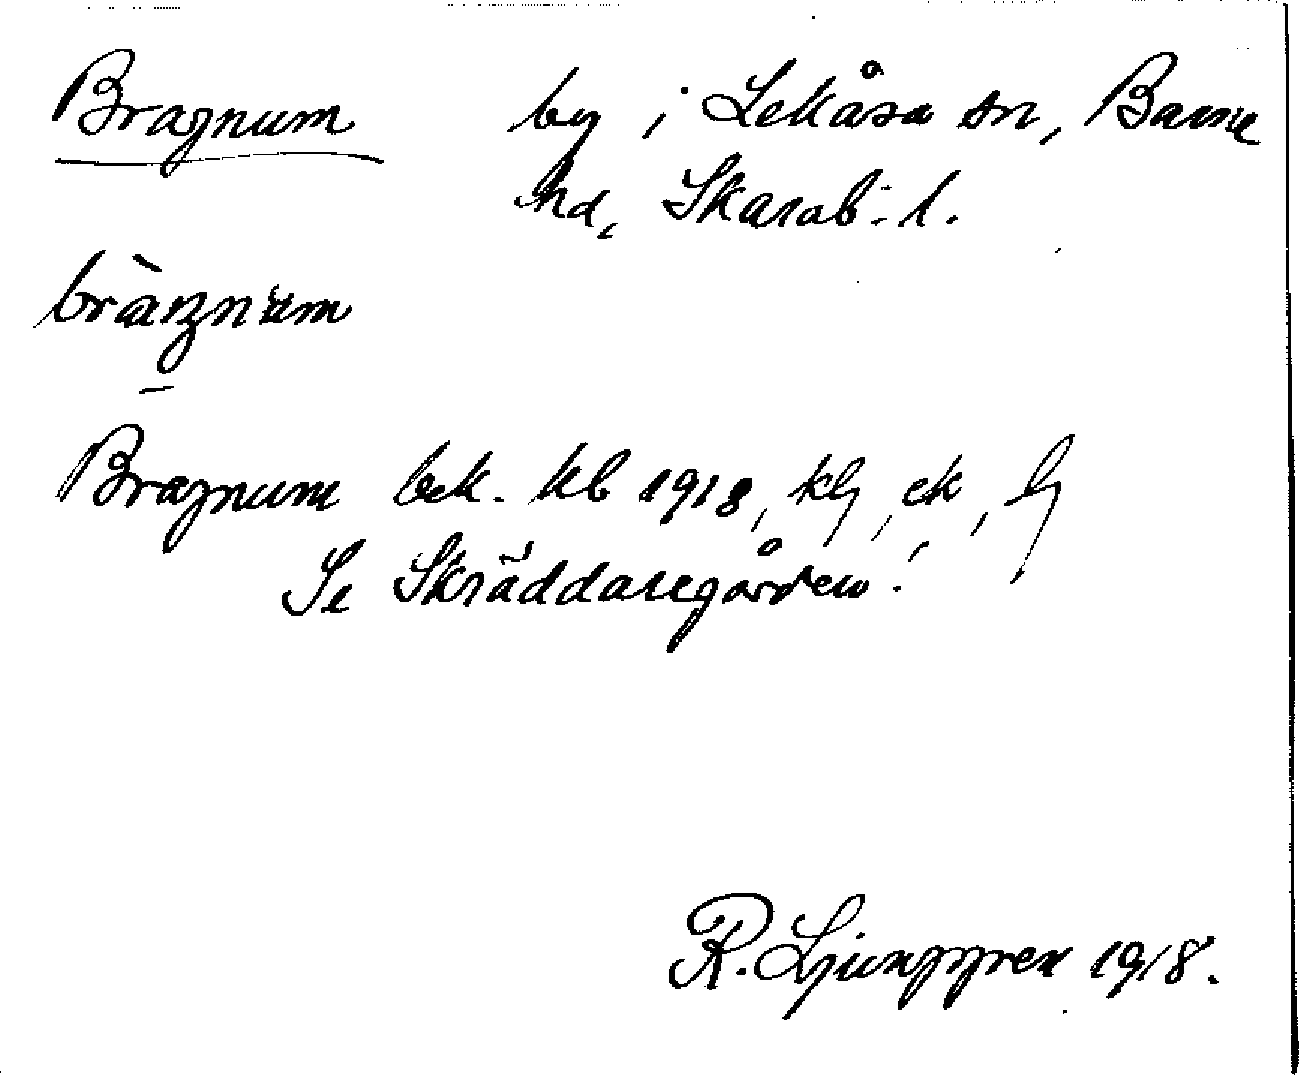 Bragnum by i Lekåsa sn, Barne
hd, Skarab. l.
Bragnum bek. kb 1918, klj, ek, lj
Se Skräddaregården!
R. Ljunggren 1918.